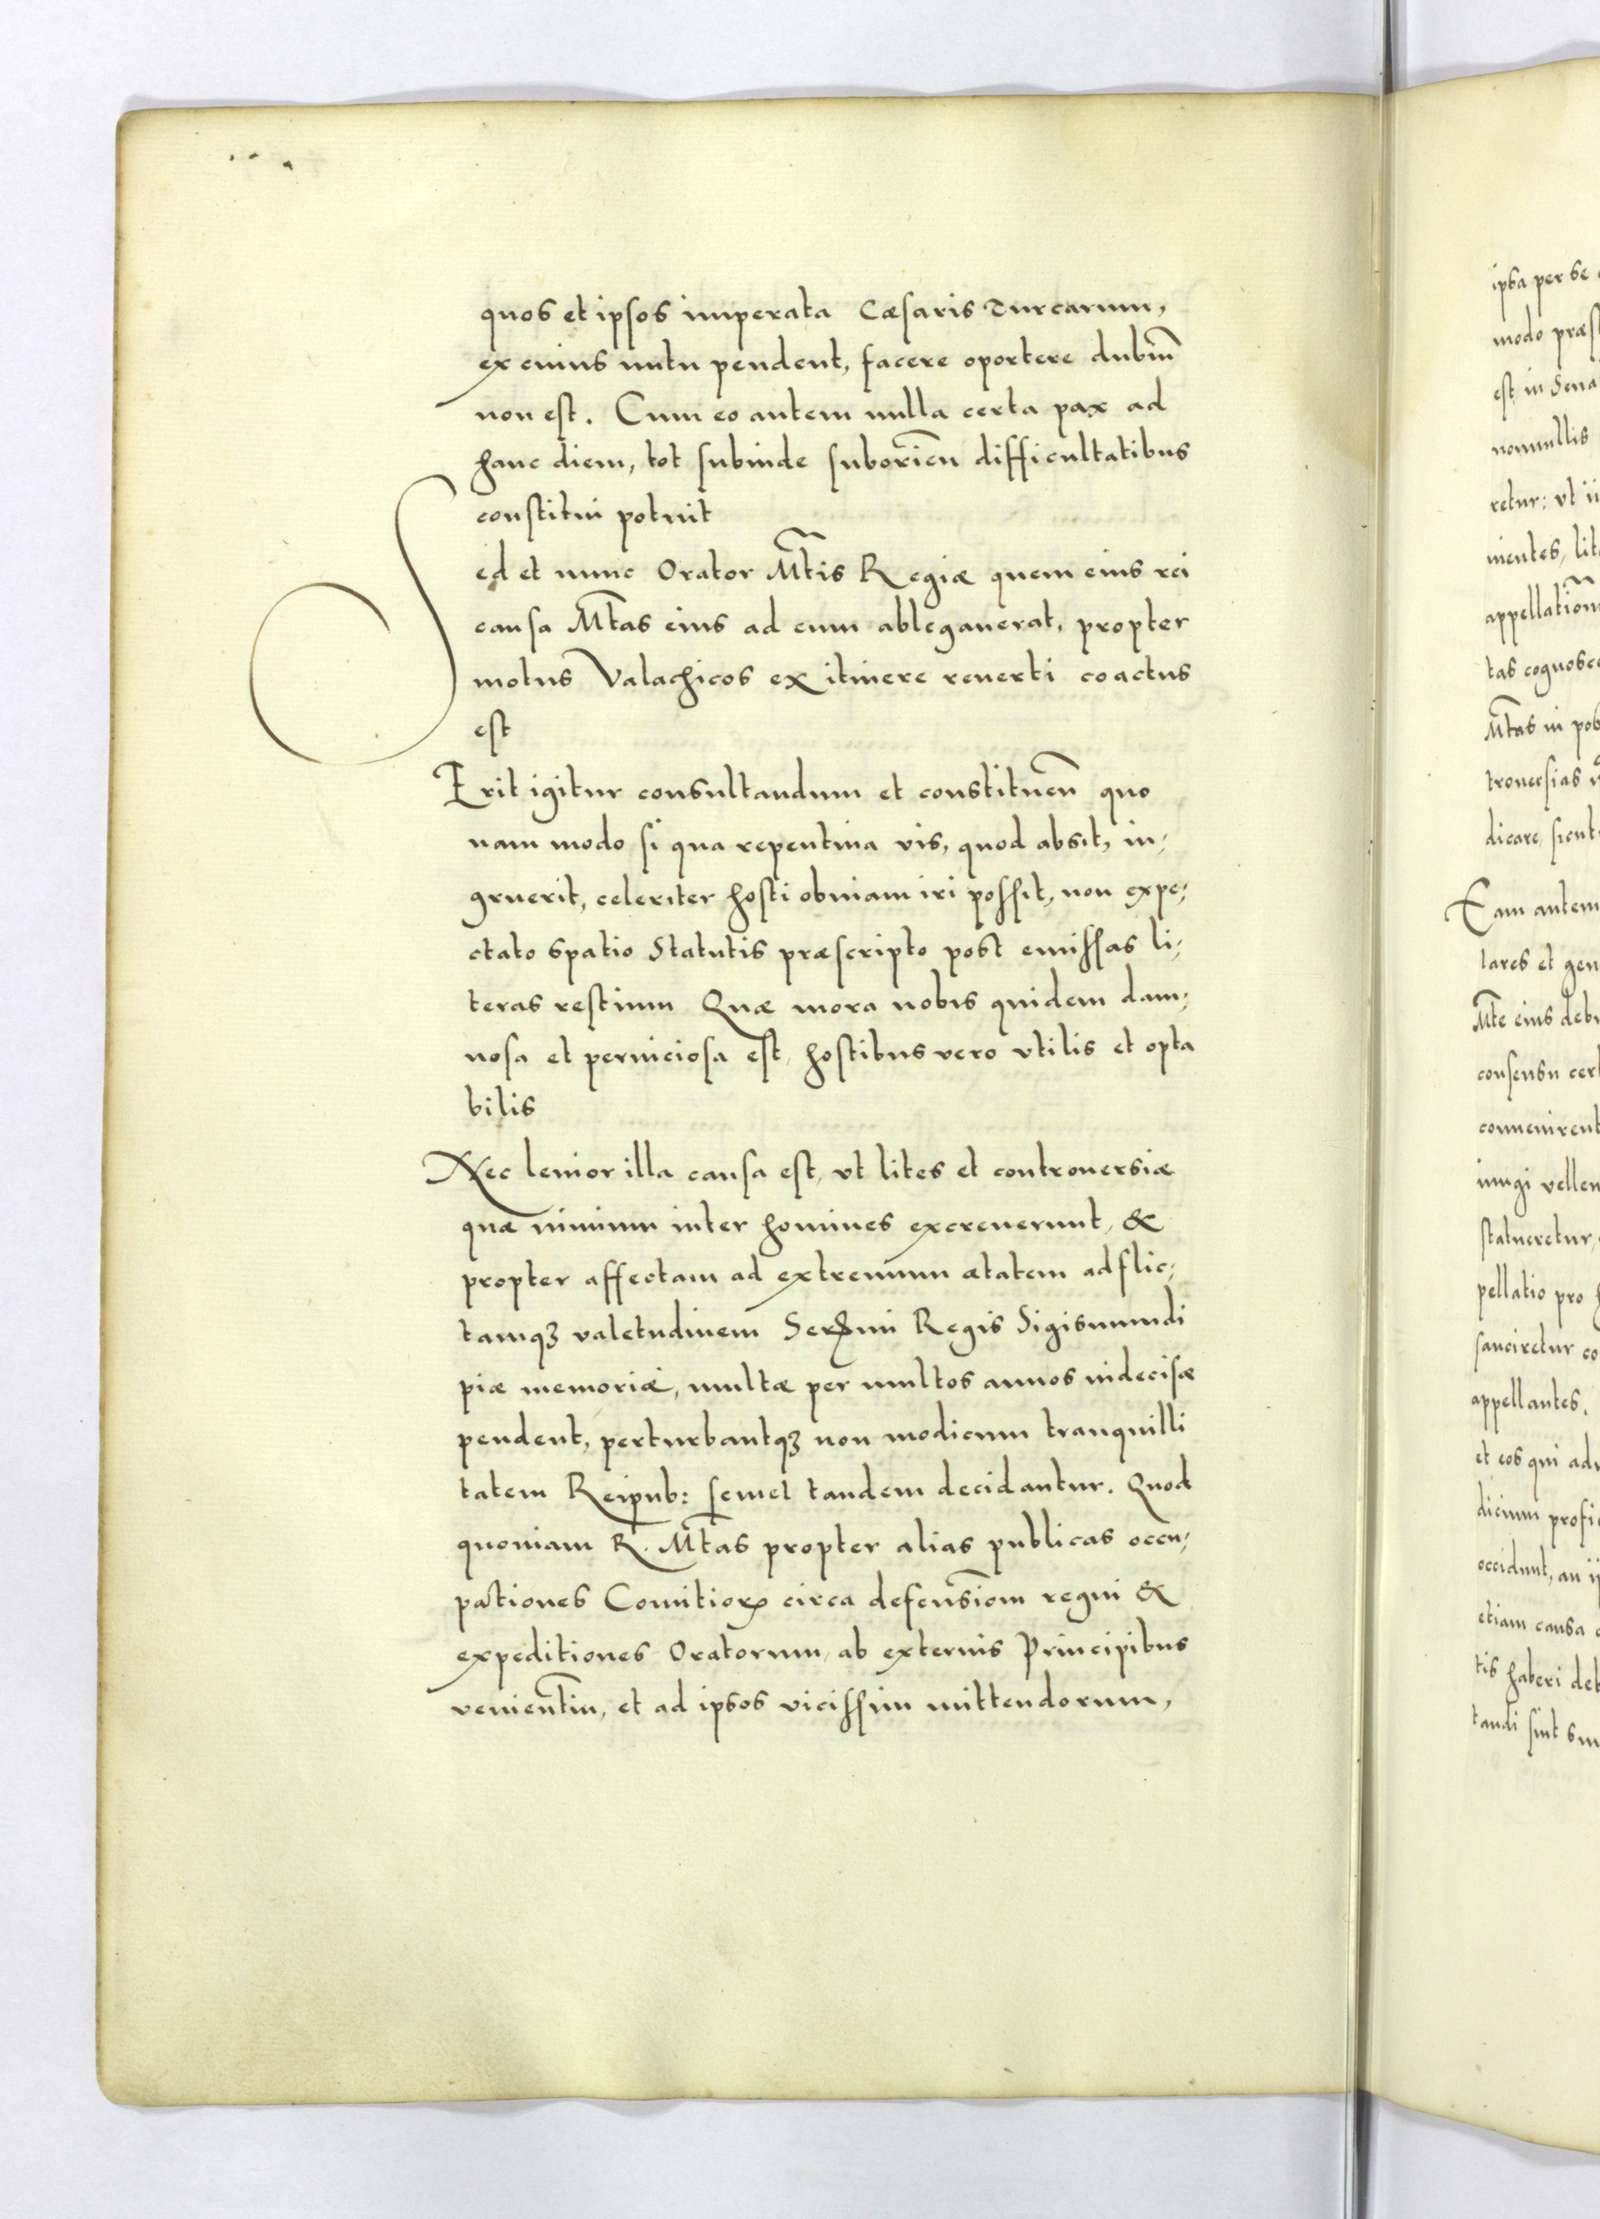 quos et ipsos imperata Cæsaris Turcarum,
ex cuius nutu pendent, facere oportere dubiū
non est. Cum eo autem nulla certa pax ad
hanc diem, tot subinde suborień difficultatibus
constitui potuit
Sed et nunc Orator Mt̃is Regiæ quem eius rei
causa Mt̃as eius ad eum ableganerat, propter
motus Valachicos ex itinere reuerti coactus
est
Erit igitur consultandum et constitueñ quo
nam modo si qua repentina vis, quod absit, in,
gruerit, celeriter hosti obuiam iri possit, non expe,
ctato spatio Statutis præscripto post emissas li,
teras restium Quæ mora nobis quidem dam,
nosa et perniciosa est, hostibus vero vtilis et opta
bilis
Nec leuior illa causa est, vt lites et controuersiæ
quæ nimium inter homines excreuerunt, &
propter affectam ad extremum ætatem adflic,
tamqꝫ valetudinem Serᵐi Regis Sigismundi
piæ memoriæ, multæ per multos annos indecisæ
pendent, perturbantqꝫ non modicum tranquilli
tatem Reipub: semel tandem decidantur. Quod
quoniam R. Mt̃as propter alias publicas occu,
pationes Comitioꝝ circa defensiõem regni &
expeditiones Oratorum, ab externis Principibus
venientiũ, et ad ipsos vicissim mittendorum,
ipsa per se
modo præs
est in Sena
nonnullis
retur: vt ii
nientes, lit
appellatiõn
tas cognosce
Mt̃as in pos
trouersias
dicare, sicut
Eam autem
lares et gen
Mt̃e eius deb
consensu cert
conuenirent
iungi vellen
statueretur,
pellatio pro
sanciretur co
appellantes.
et eos qui adu
dicium profi
occidunt, an ij
etiam causa
tis haberi deb
tandi sint su